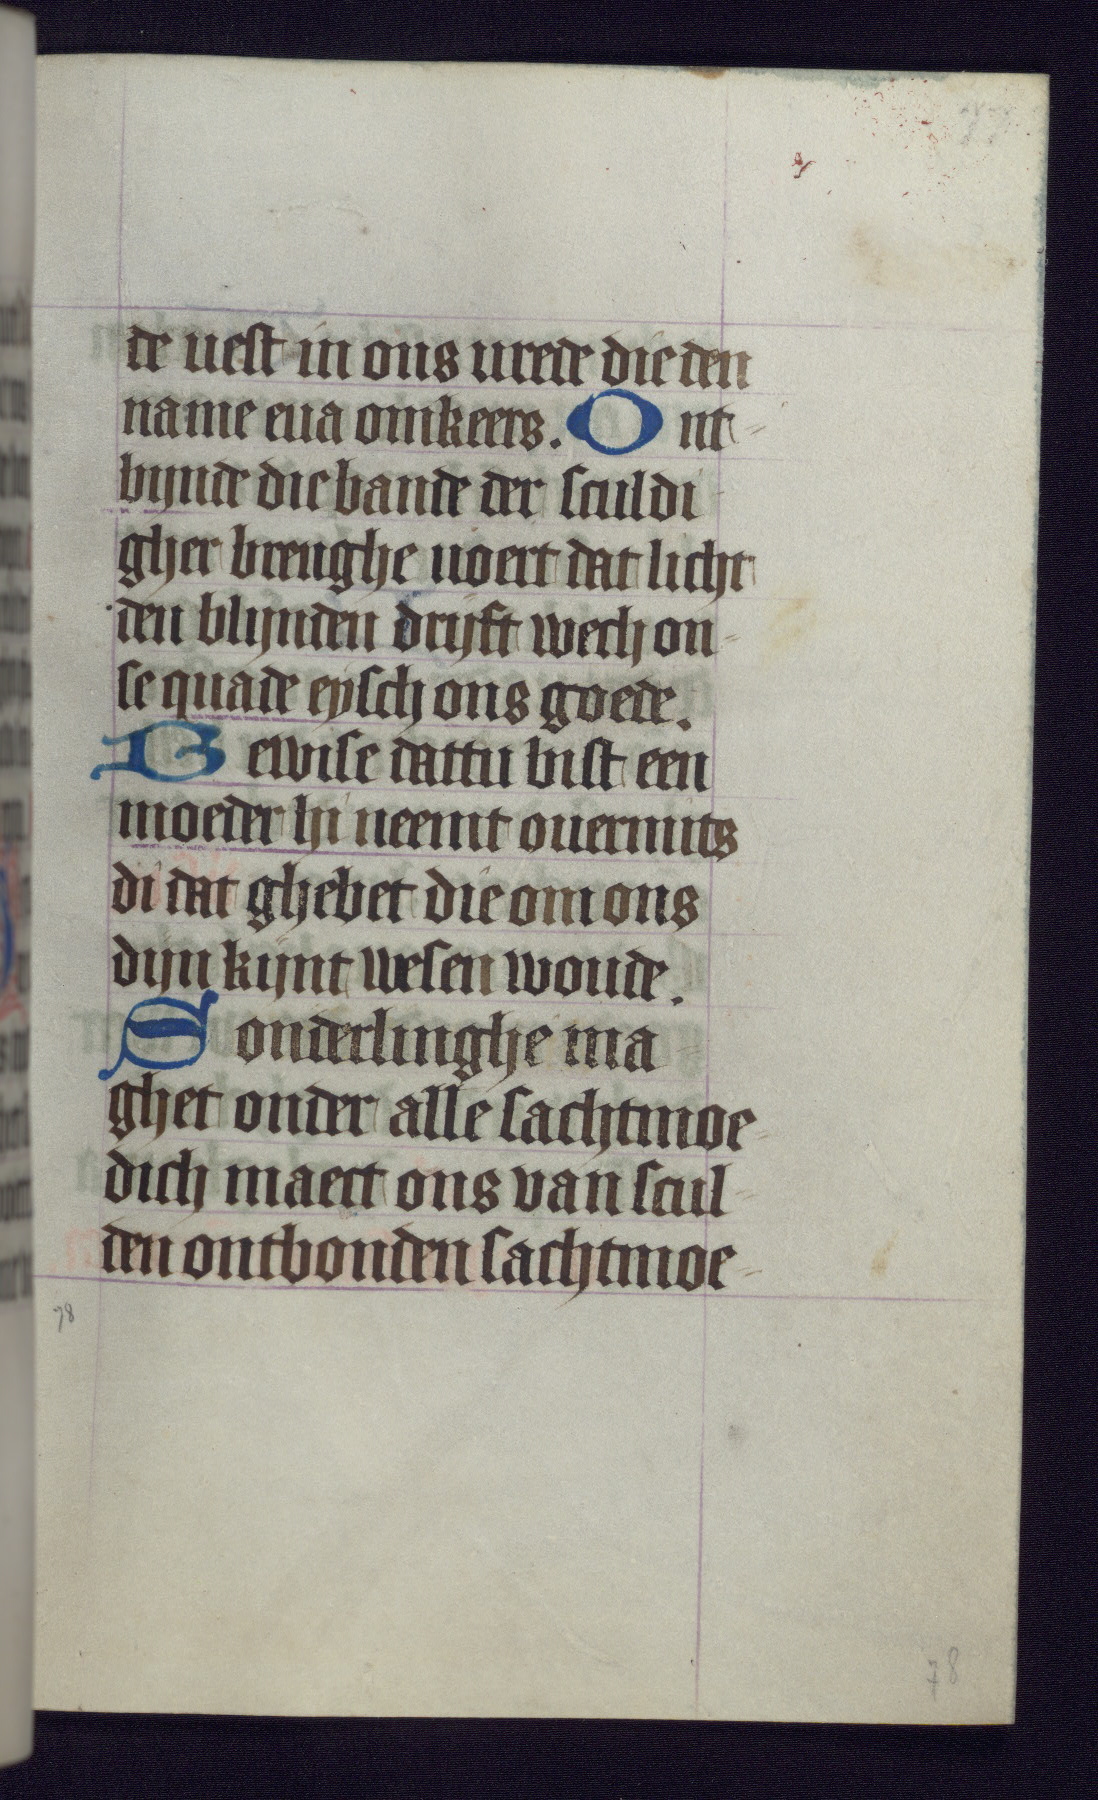 77
de uest in ons urede die den
name eua omkeers. Ont-
bijnde die bande der sculdi
gher brenghe uoert dat licht
den blijnden drijft wech on-
se quade eysch ons goede.
Bewise dattu bist een
moeder hi neemt ouermits
di dat ghebet die om ons
dijn kijnt wesen woude.
Sonderlinghe ma-
ghet onder alle sachtmoe-
dich maect ons van scul-
den ontbonden sachtmoe-
78
78